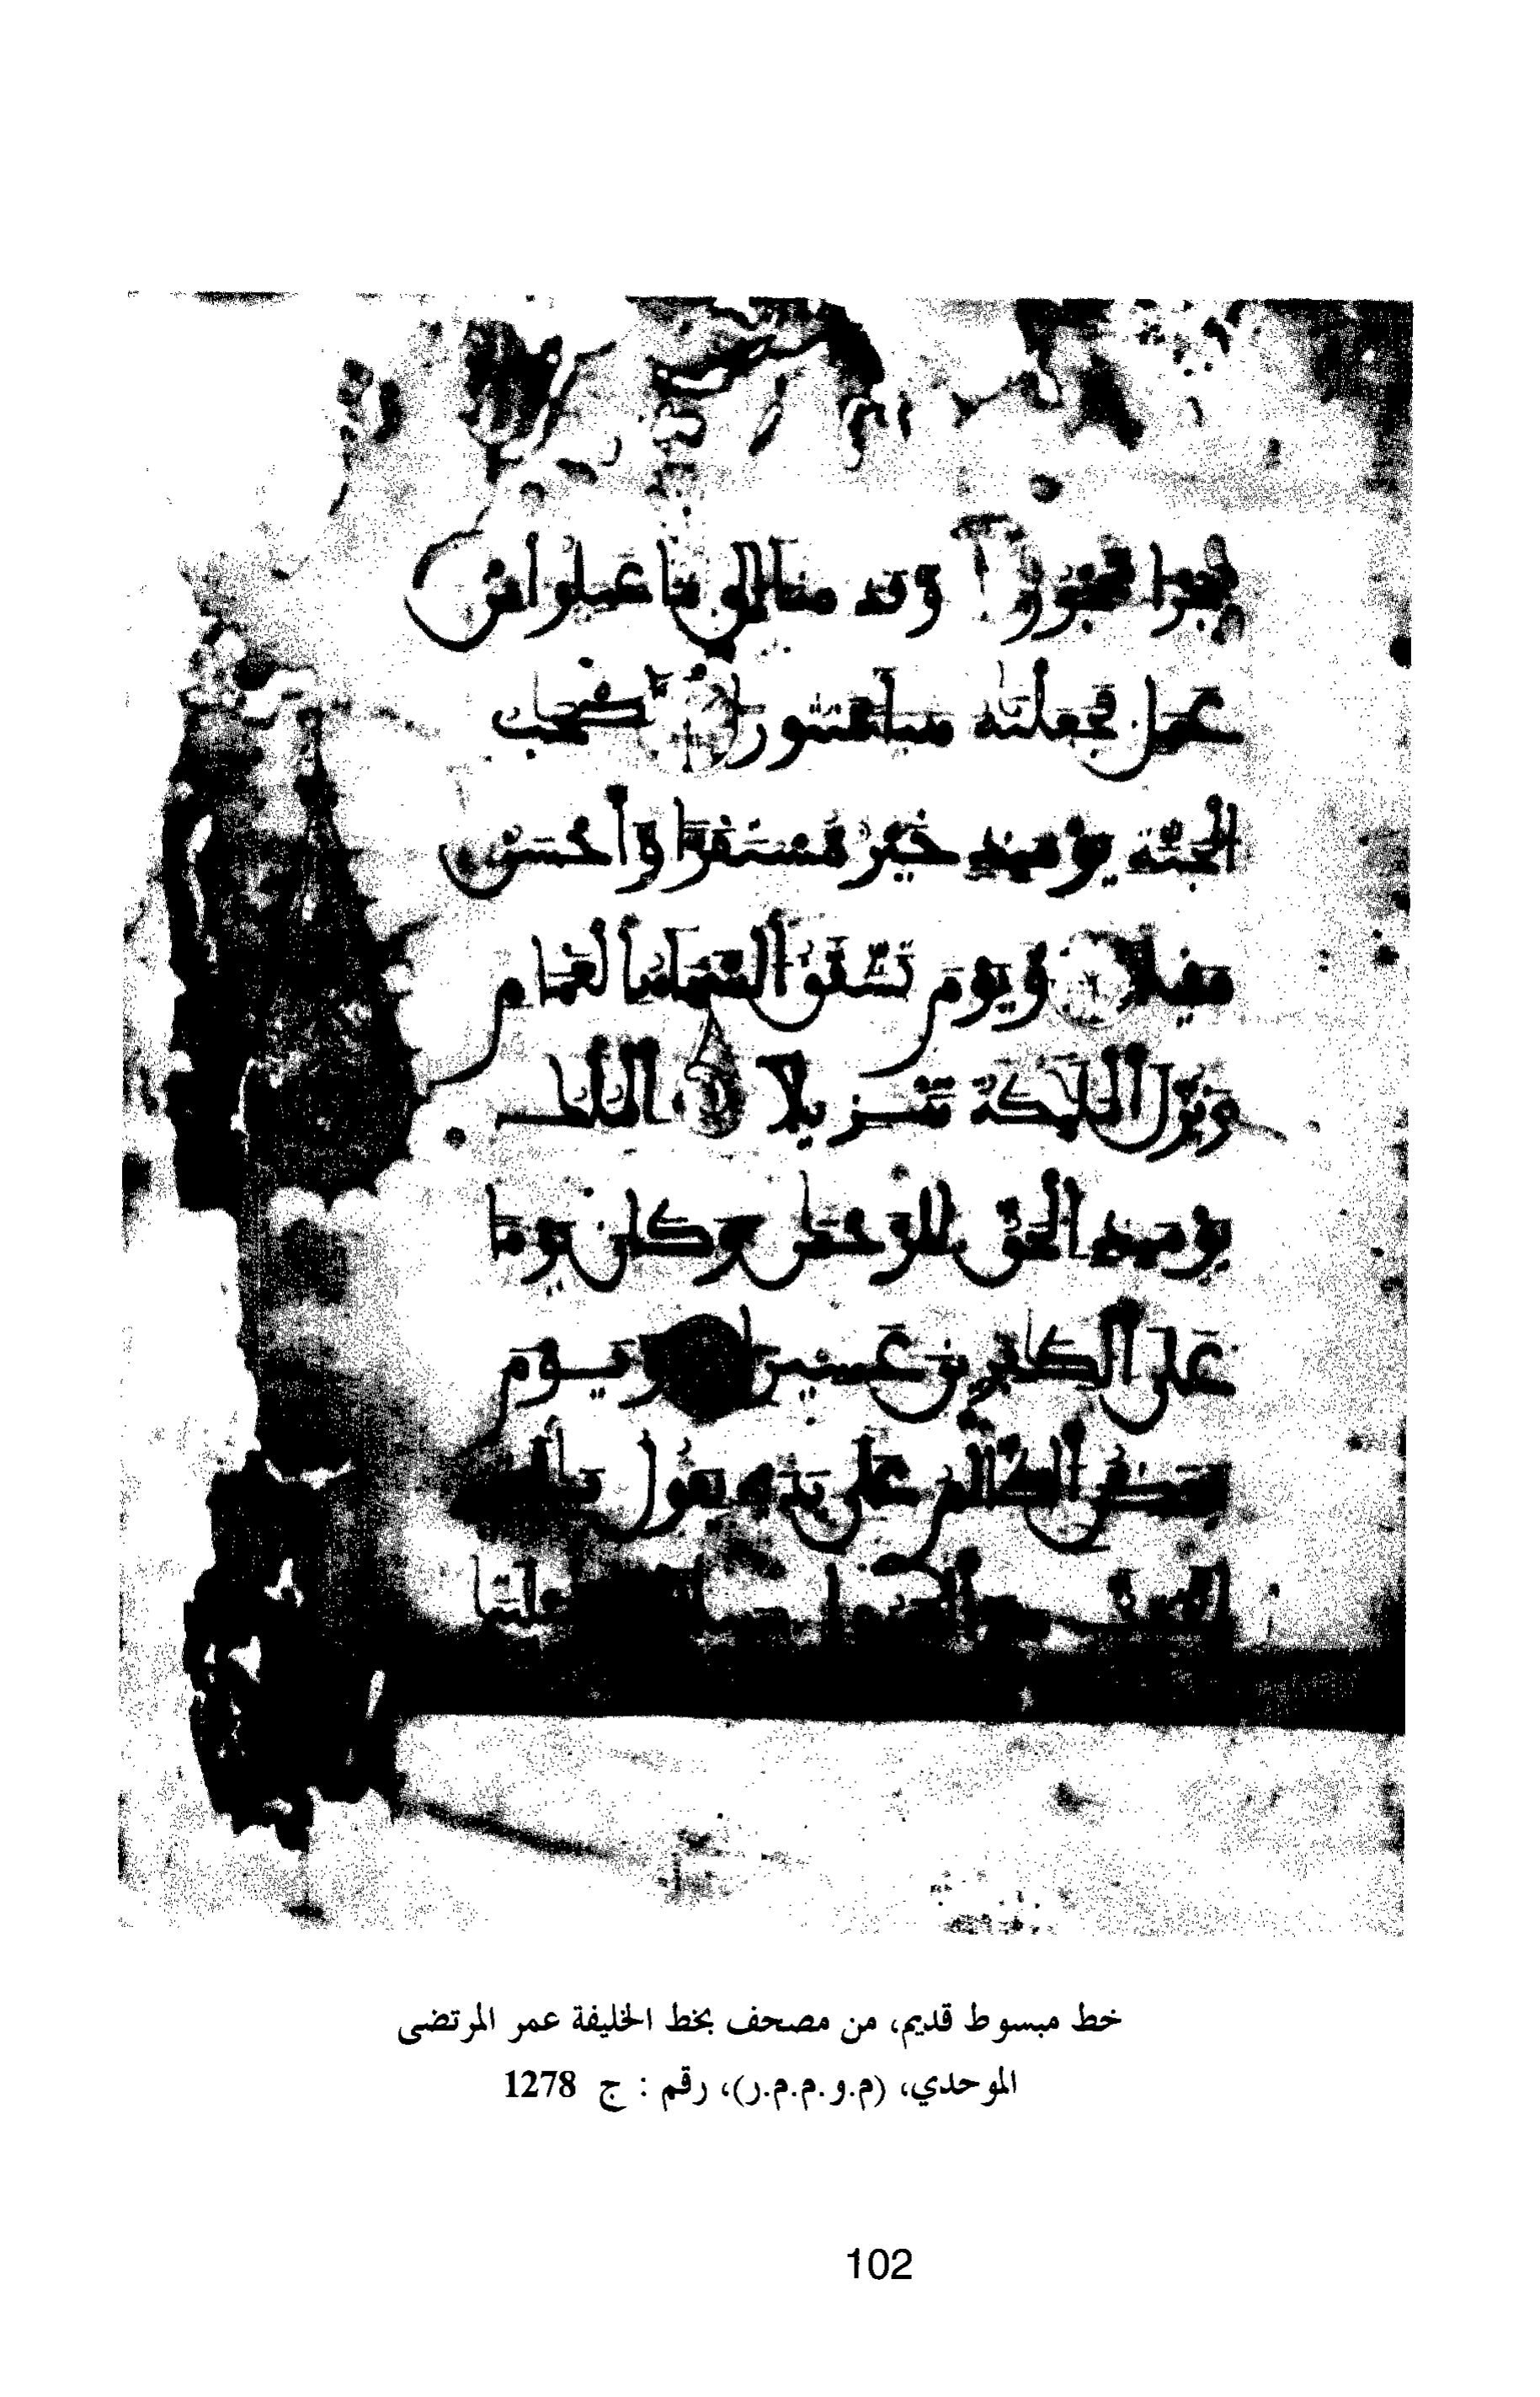 حجرا محجورا وقدمنا إلى ما عملوا من
عمل فجعلنه هبا منثورا أصحب
الجنة يومئذ خير مستقرا وأحسن
مقيلا ويوم تشقق السماء بالغمام
ونزل المليكة تنزيلا الملك
يومئذ الحق للرحمن وكان يوما
على الكفرين عسيرا ويوم
يعض الظالم على يديه يقول يليتني
اتخذت مع الرسول سبيلا يويلتا
خط مبسوط قديم، من مصحف بخط الخليفة عمر المرتضى
الموحدي، (م.و.م.م.ر)، رقم : ج 1278
102